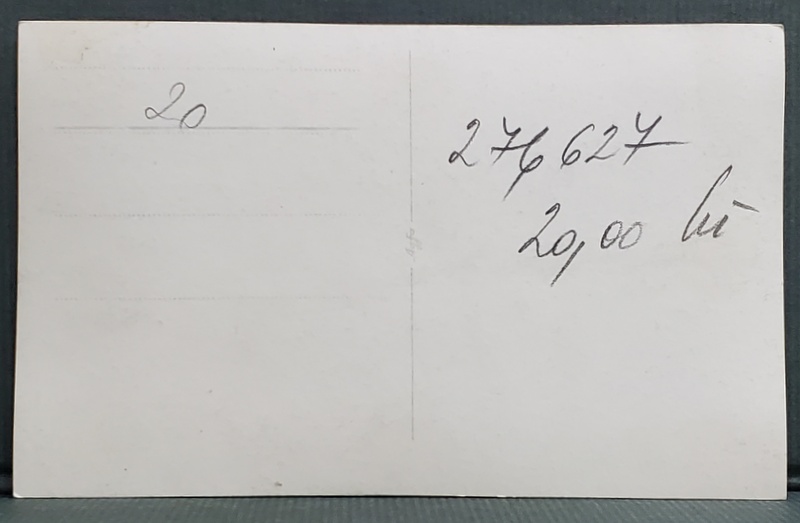 20
276627
20,00 Kč